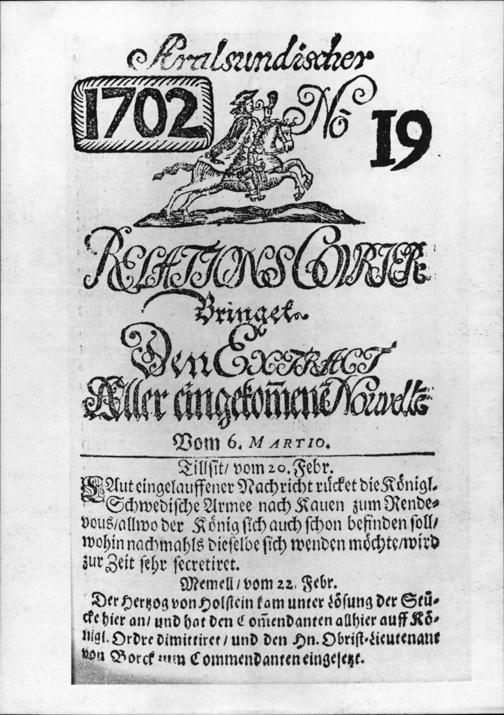 Stralsundischer
1702
No
19
RELATIONS COURIER
Bringet
Den EXTRACT
Aller eingekom̅ene Nouvelle
Vom 6. MARTIO.
Tillsit/ vom 20. Febr.
LAut eingelauffener Nachricht rücket die Königl.
Schwedische Armee nach Kauen zum Rende-
vous/allwo der König sich auch schon befinden soll/
wohin nachmahls dieselbe sich wenden möchte/wird
zur Zeit sehr secretiret.
Memell/ vom 22. Febr.
Der Hertzog von Holstein kam unter Lösung der Stü-
cke hier an/ und hat den Com̅endanten allhier auff Kö-
nigl. Ordre dimittiret/ und den Hn. Obrist-Lieutenant
von Borck zum Commendanten eingesetzt.